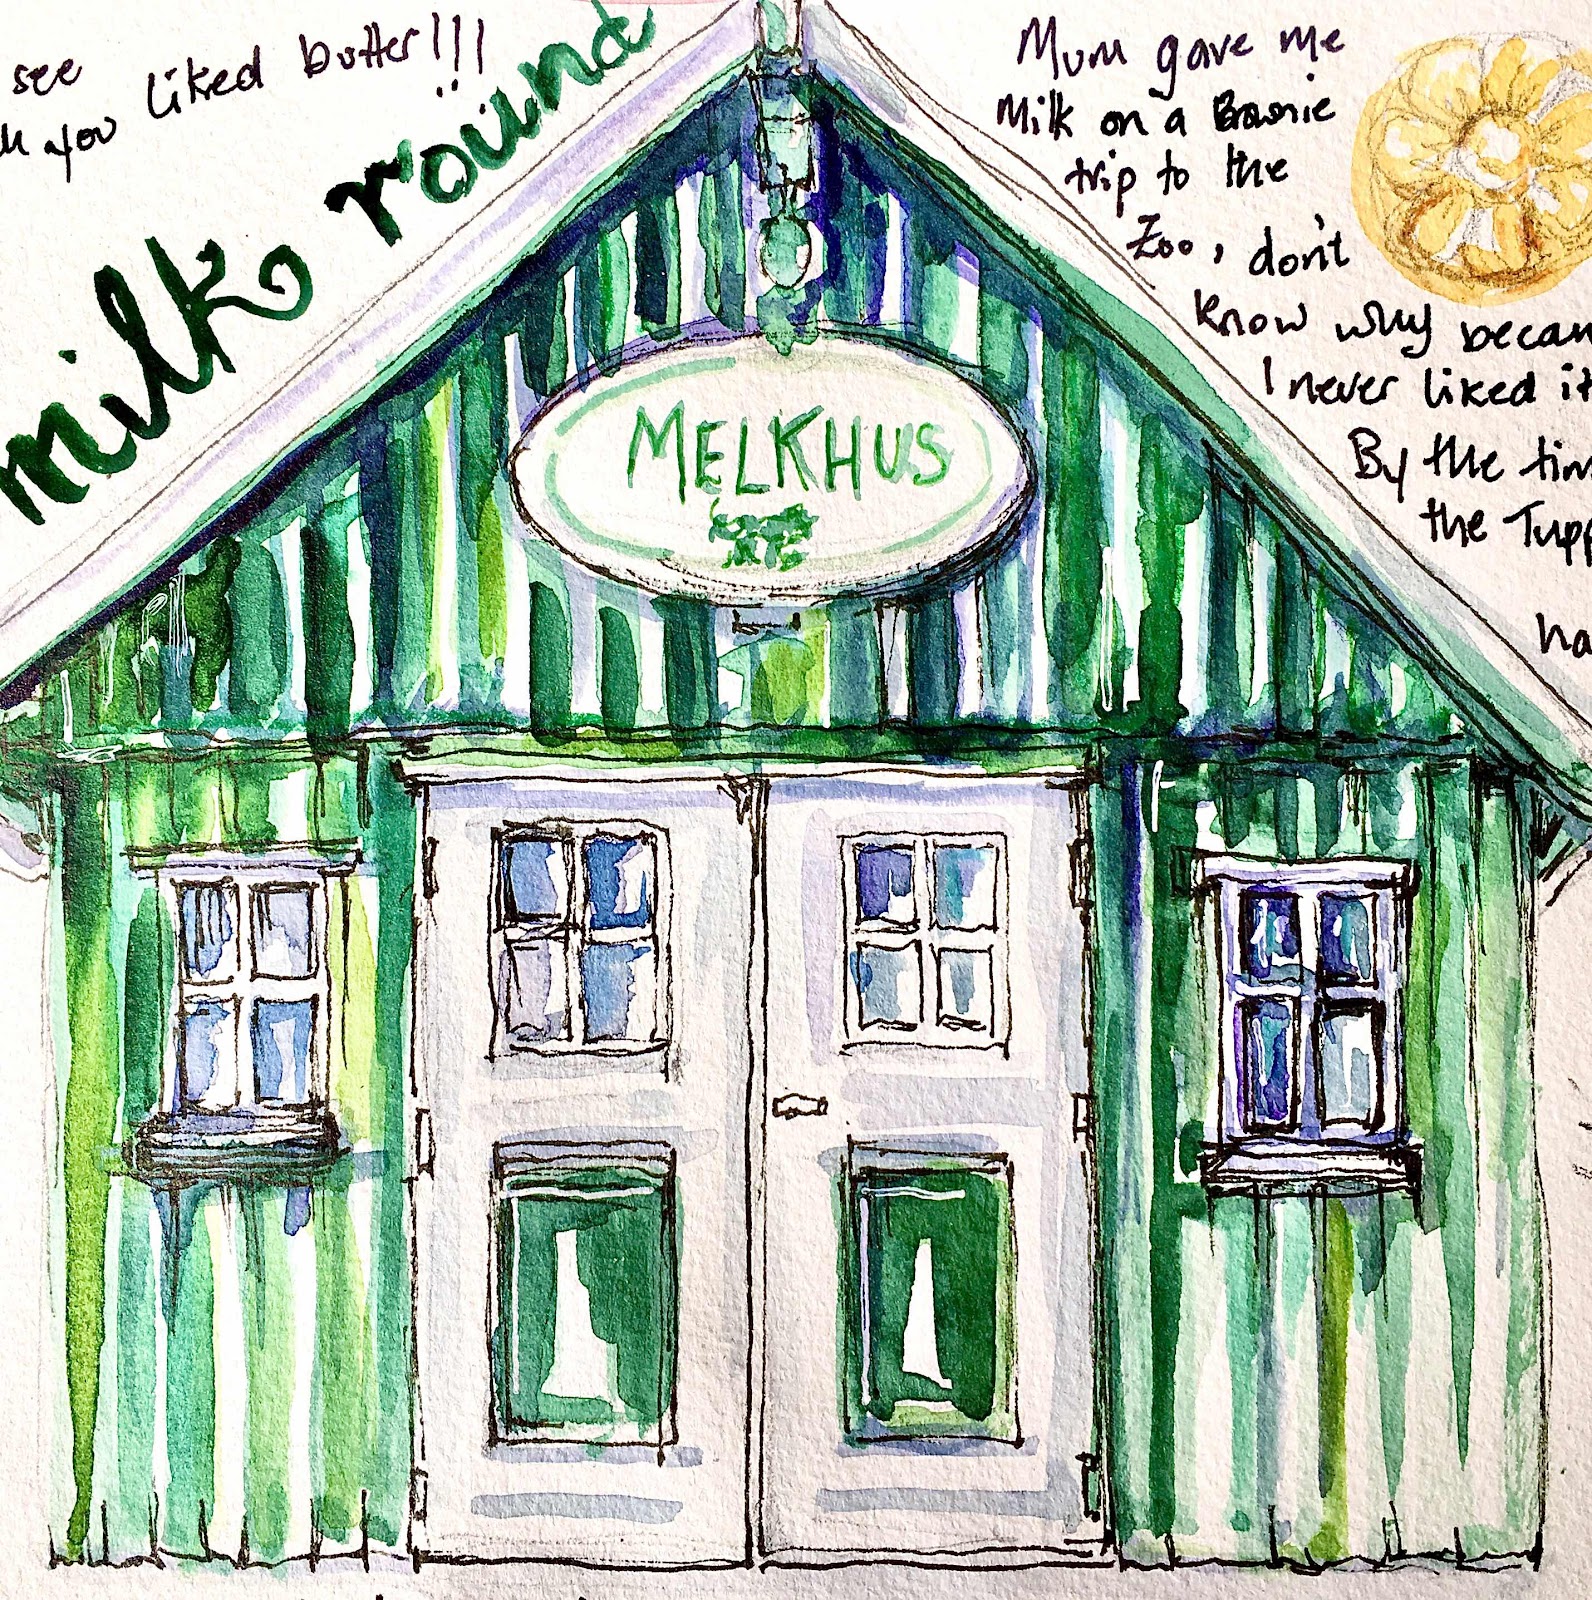 see
you liked butter!!!
milk round
Mum gave me
Milk on a Brownie
trip to the
Zoo, don't
know why
I never liked it
By the
the
MELKHUS